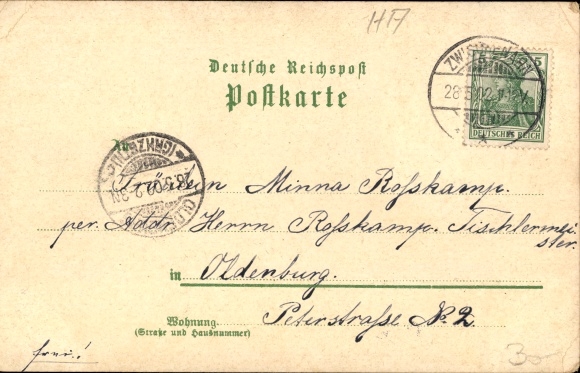 HA
Deutsche Reichspost
Postkarte
ZWISCHENAHN
28.5.02
5 5
DEUTSCHES REICH
An
OLDENBURG
(GRHZGT.)
28.5.02.2-3N
Fräulein Minna Roßkamp.
per. Addr. Herrn Roßkamp. Tischlermei=
ster.
in Oldenburg.
Wohnung
(Straße und Hausnummer)
Peterstraße No. 2
frei!
30